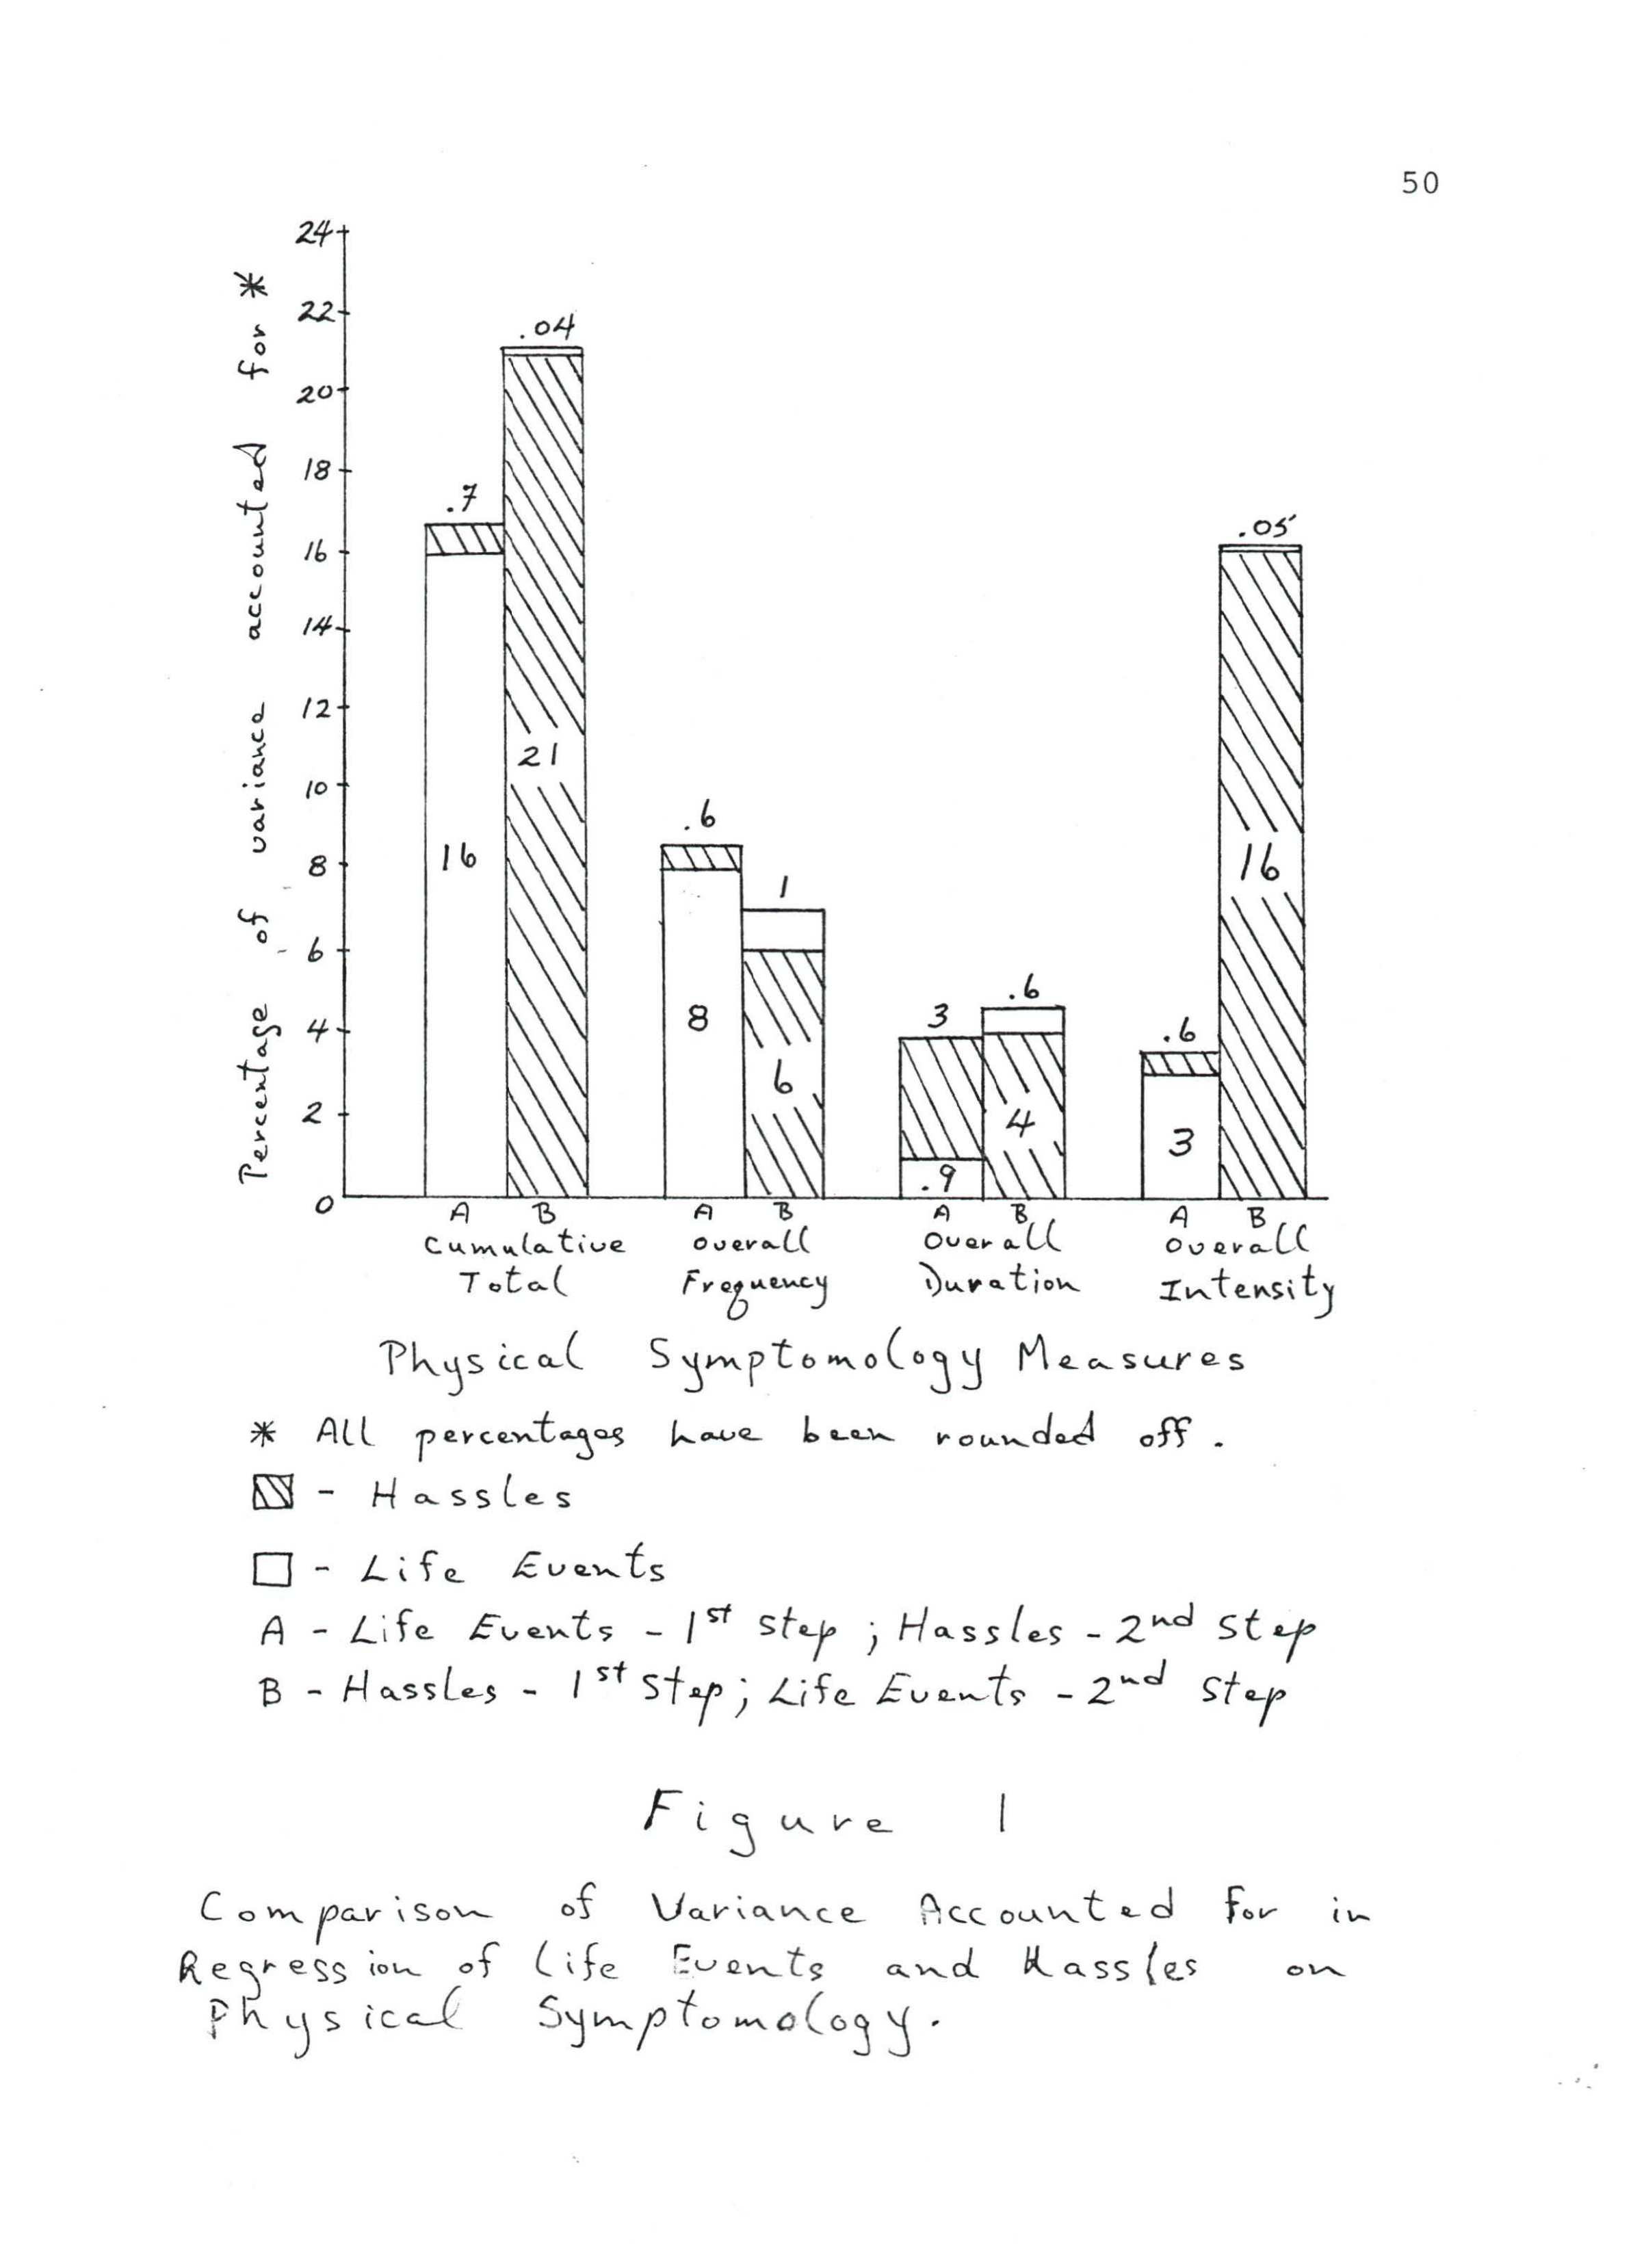 50
Percentage of variance accounted for *
24
22
20
18
16
14
12
10
8
6
4
2
0
.7
16
.04
21
.6
8
1
6
3
.9
.6
4
.6
3
.05
16
A B A B A B A B
Cumulative Overall Overall Overall
Total Frequency Duration Intensity
Physical Symptomology Measures
* All percentages have been rounded off.
- Hassles
- Life Events
A - Life Events - 1st step; Hassles - 2nd step
B - Hassles - 1st step; Life Events - 2nd step
Figure 1
Comparison of Variance Accounted For in
Regression of Life Events and Hassles on
Physical Symptomology.